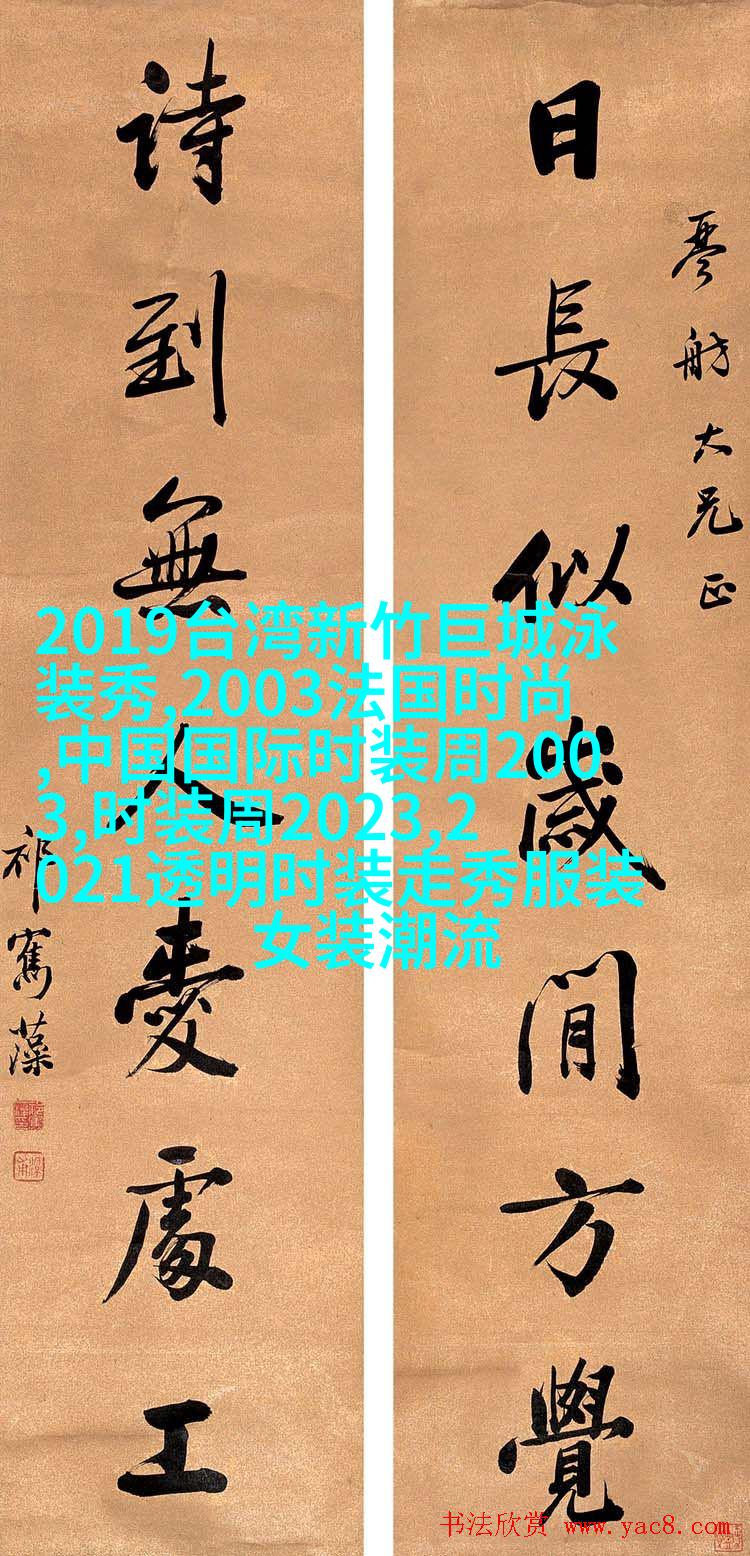 日長似歲閒方覺
琴舫大兄正
詩到無人愛處工
祁寯藻
2019台湾新竹巨城泳
装秀,2003法国时尚
,中国国际时装周200
3,时装周2023,2
021透明时装走秀服装
女装潮流
书法欣赏 www.yac8.com